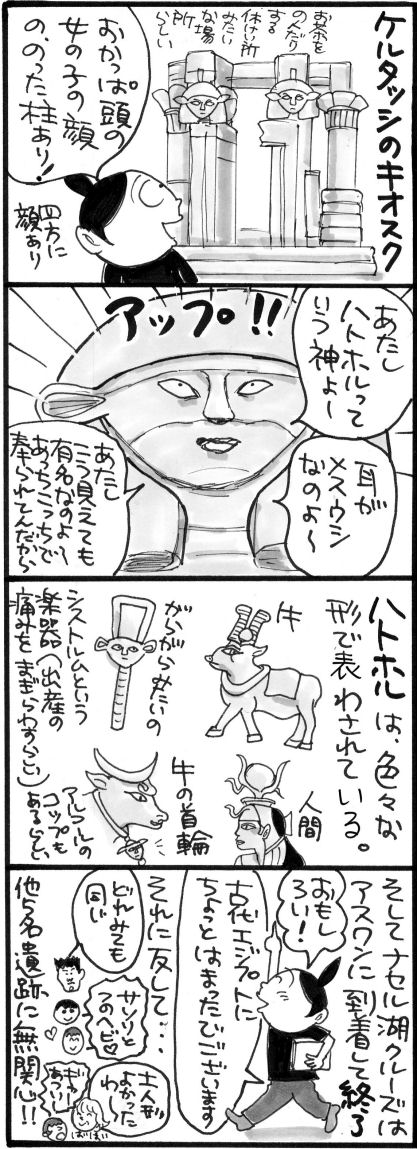 ケルタッシのキオスク
お茶を
のんだり
する
休けい所
みたい
な場
所
らしい
おかっぱ頭の
女の子の顔
の、のった柱あり!
四方に
顔あり
アップ!!
あたし
ハトホルって
いう神よ〜
耳が
メスウシ
なのよ〜
あたし
こう見えても
有名なのよ〜
あっちこっちで
奉られてんだから
ハトホルは、色々な
形で表わされている。
牛
がらがらみたいの
シストルムという
楽器(出産の
痛みをまぎらわすらしい)
人間
牛の首輪
アルコールの
コップも
あるらしい
そしてナセル湖クルーズは
アスワンに到着して終了
おもしろい!
古代エジプトに
ちょっとはまったびでございます
それに反して・・・
どれみても
同じ
サソリと
コブのヘビ♡
よかった
わー
ばいばい
他ら名遺跡に無関心!!